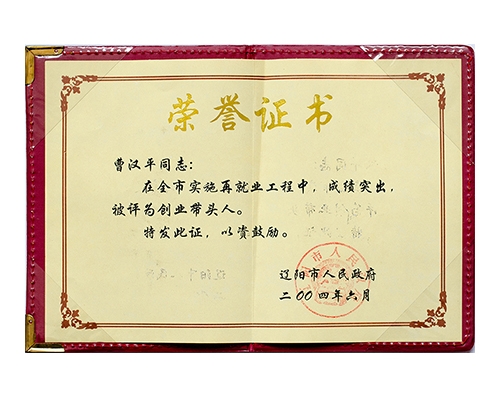 荣誉证书
曹汉平同志：
在全市实施再就业工程中，成绩突出，
被评为创业带头人。
特发此证，以资鼓励。
辽阳市人民政府
二〇〇四年六月